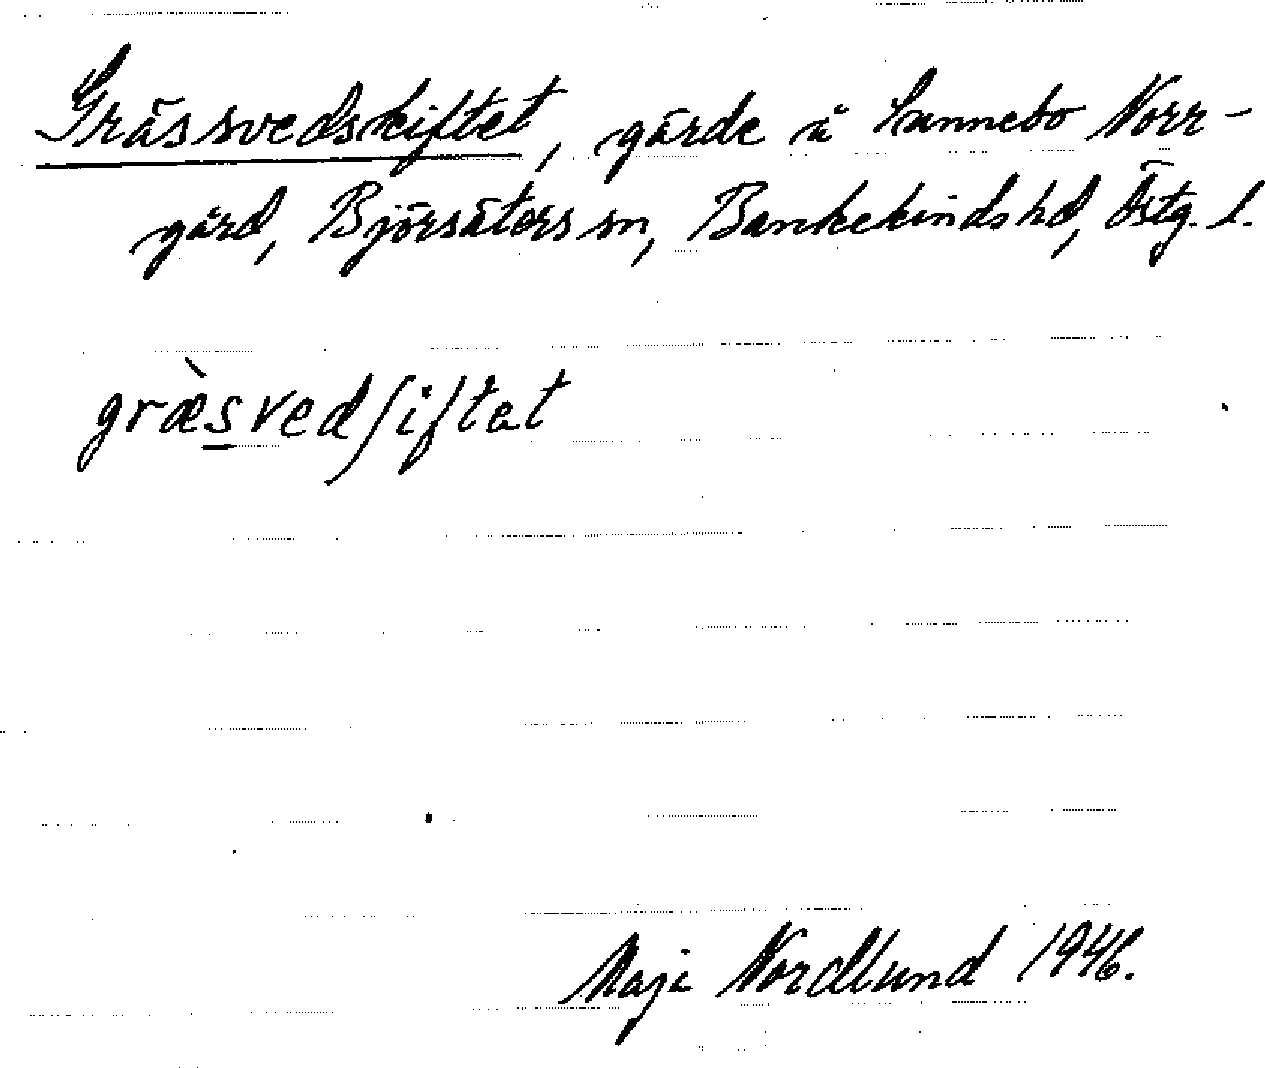 Grässvedskiftet, gärde å Sannebo Norr-
gård, Björsäters sn, Bankekinds hd, Östg. l.
græ̀s̲vedʃiftət
Maja Nordlund 1946.